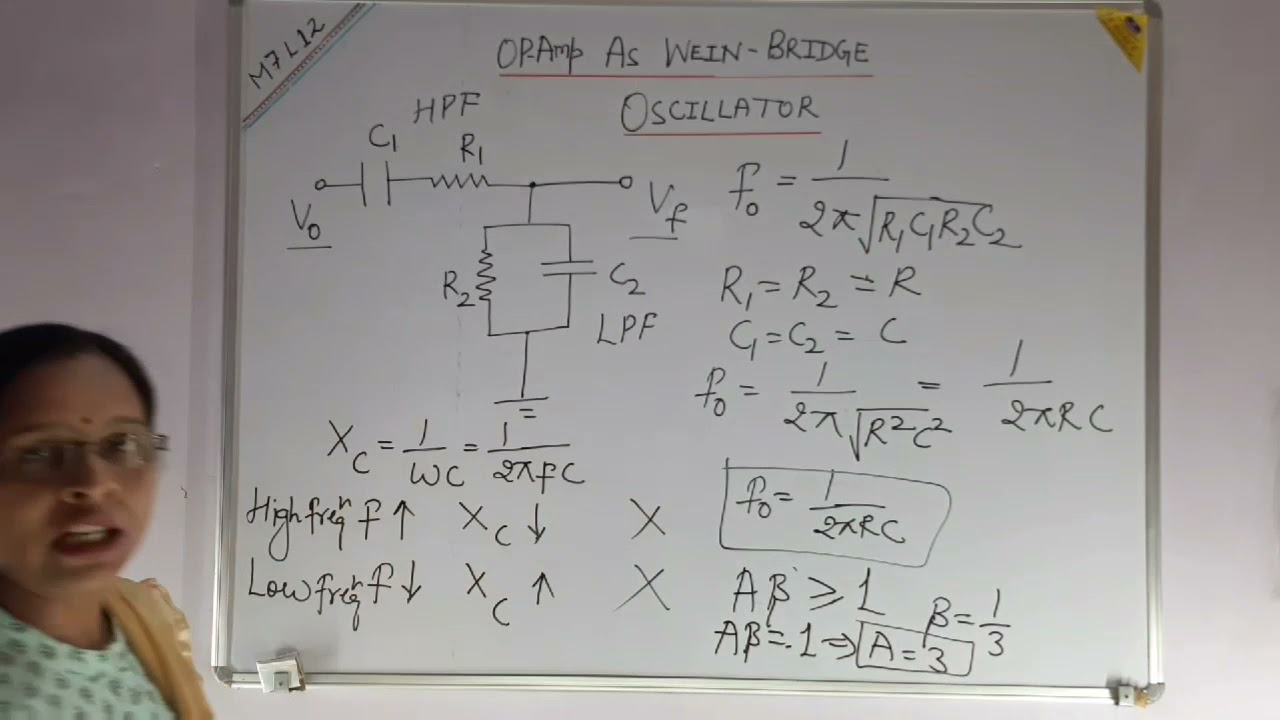 M7L12
OP-Amp As WEIN-BRIDGE
OSCILLATOR
HPF
C₁
R₁
V₀
V_f
R₂
C₂
LPF
f₀ = 1/2π√R₁C₁R₂C₂
R₁ = R₂ = R
C₁ = C₂ = C
f₀ = 1/2π√R²C² = 1/2πRC
X_C = 1/ωC = 1/2πfC
High freqⁿ f ↑ X_C ↓ X
Low freqⁿ f ↓ X_C ↑ X
f₀ = 1/2πRC
Aβ ≥ 1
β = 1/3
Aβ = 1 ⇒ A = 3